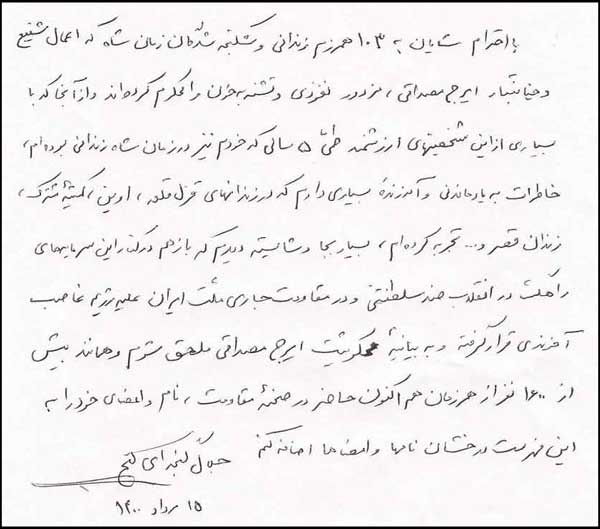 با احترام شایان به ۱۰۳ همرزم زندانی و شکنجه شدگان زمان شاه که اعمال شنیع
و خیانتبار ایرج مصداقی، مزدور نفوذی و تشنه به خون را محکوم کرده‌اند و از آنجا که با
بسیاری از این شخصیتهای ارزشمند طی ۵ سالی که خودم نیز در زمان شاه زندانی بوده‌ام،
خاطرات به یادماندنی و آموزندهٔ بسیاری دارم که در زندانهای قزل قلعه، اوین، کمیتهٔ مشترک،
زندان قصر و... تجربه کرده‌ام، بسیار بجا و شایسته دیدم که باز هم در کنار این سرمایه‌های
راهگشا در انقلاب ضد سلطنتی و در مقاومت جاری ملت ایران علیه رژیم غاصب
آخوندی قرار گرفته و به بیانیهٔ محکومیت ایرج مصداقی ملحق شوم و همانند بیش
از ۱۶۰۰ نفر از همرزمان هم اکنون حاضر در صحنهٔ مقاومت، نام و امضای خود را به
این فهرست درخشان نامها و امضاها اضافه کنم
جلال گنجه‌ای
۱۵ مرداد ۱۴۰۰